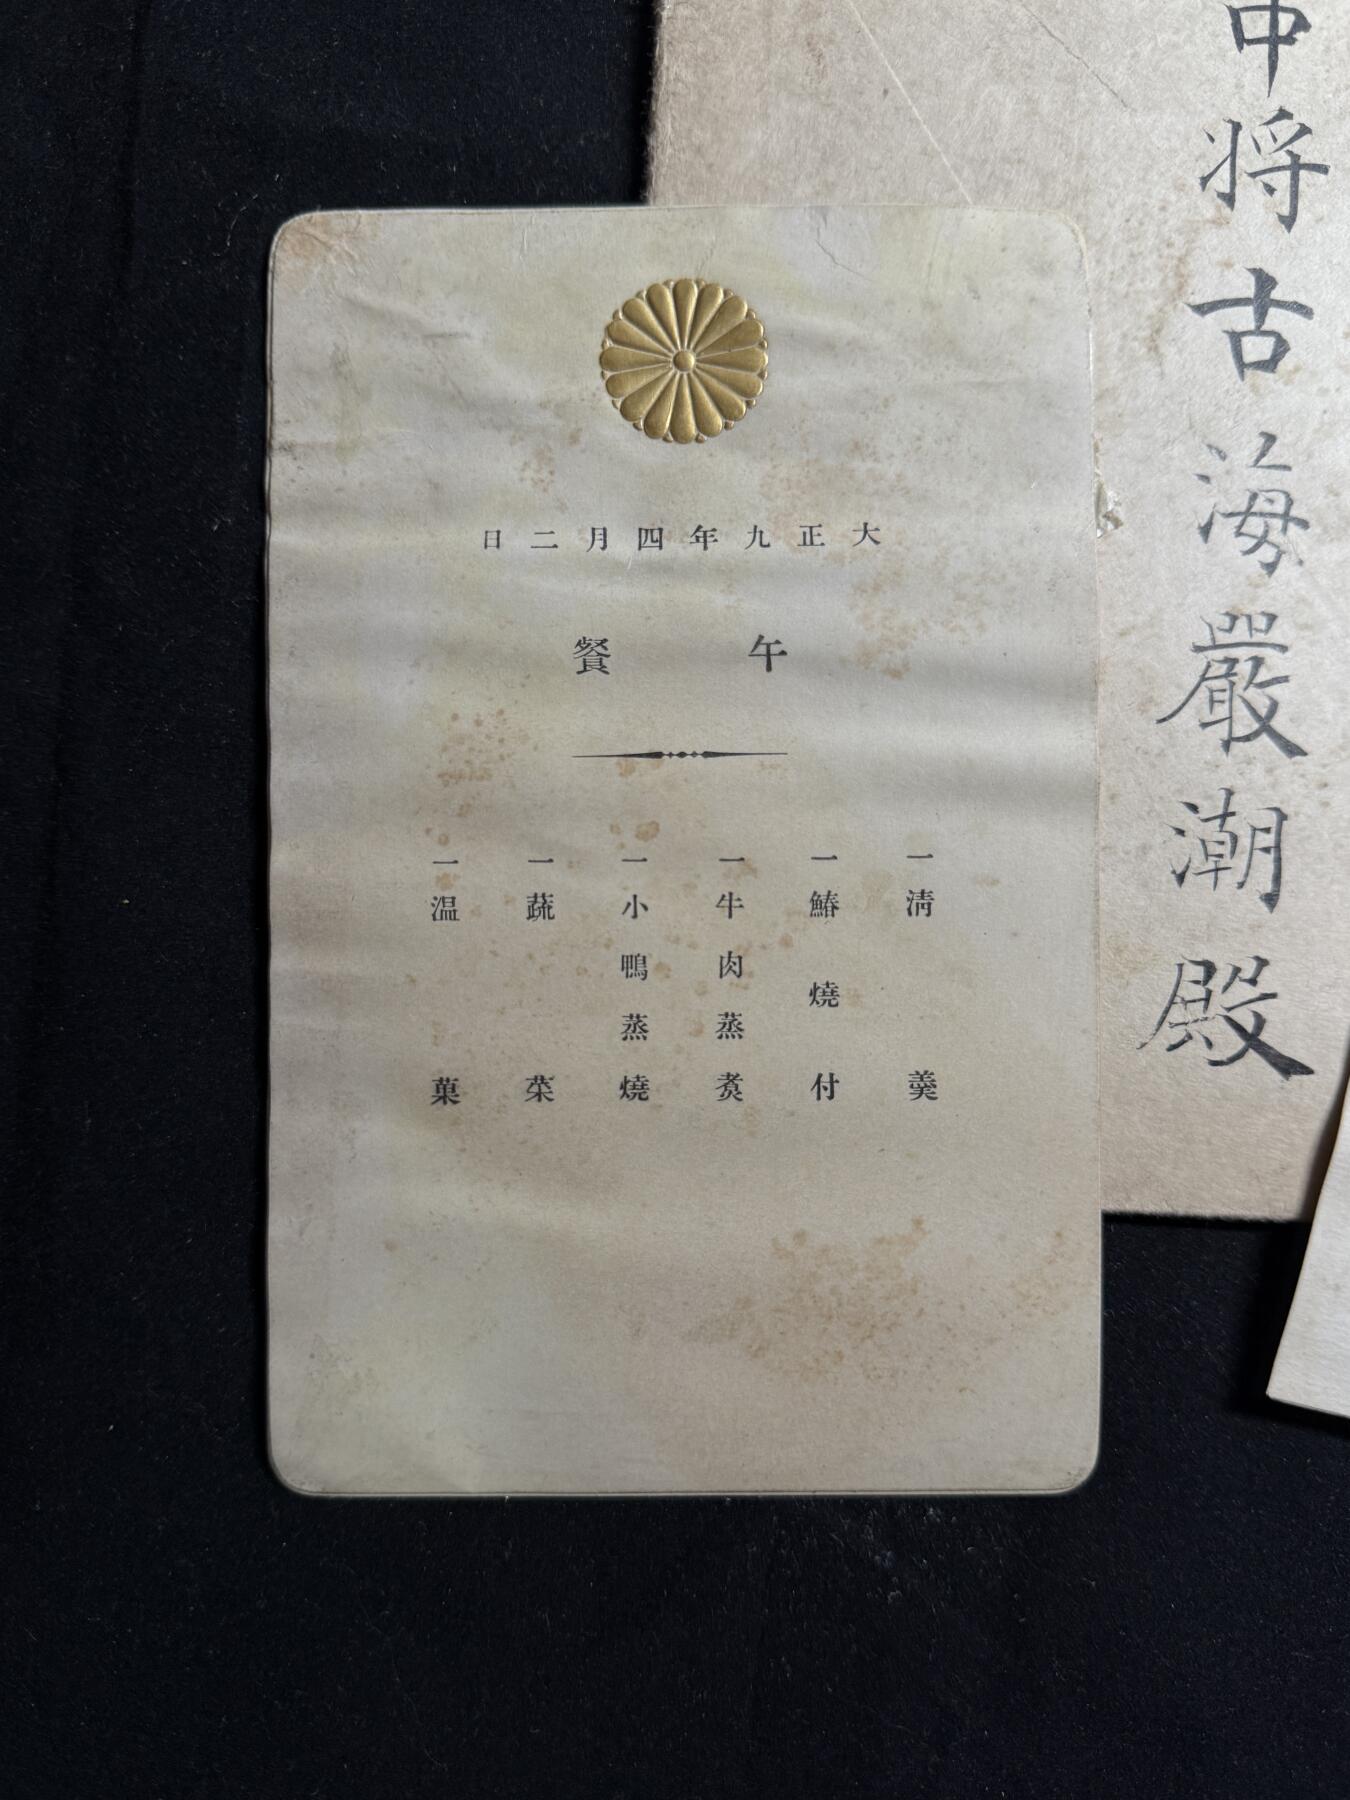 大正九年四月二日
午餐
一清羹
一鰆燒付
一牛肉蒸煑
一小鴨蒸燒
一蔬菜
一温菓
中将古海嚴潮殿